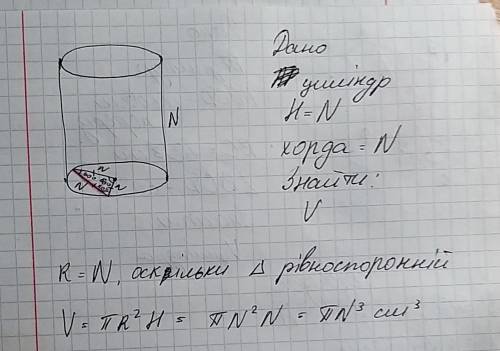 Дано
циліндр
H = N
N
хорда = N
Знайти:
V
R = N, оскільки Δ рівносторонній
V = πR²H = πN²N = πN³ см³